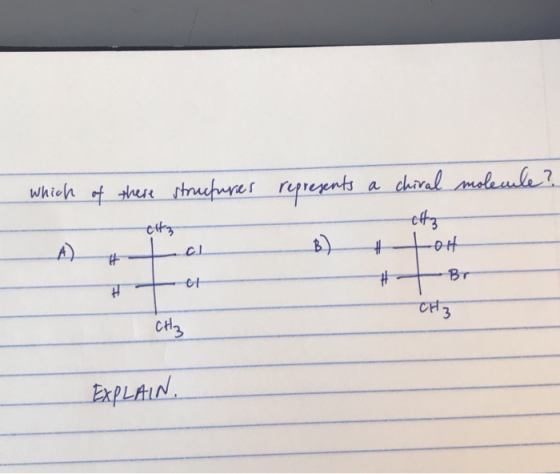 which of these structures represents a chiral molecule?
CH3 CH3
A) H Cl B) H OH
H Cl H Br
CH3 CH3
EXPLAIN.